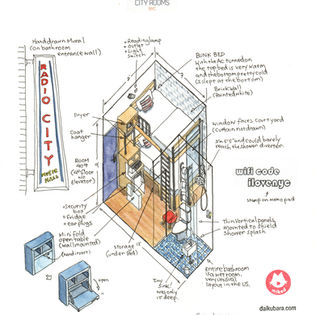 CITY ROOMS
NYC
Handdrawn Mural
(on bathroom
entrance wall)
RADIO CITY
MUSIC HALL
• Reading lamp
• outlet
• Light
switch
BUNK BED
With the AC turned on
the top bed is very warm
and the bottom pretty cold
(I slept at the bottom)
Brick wall
(Painted white)
Dryer
Coat
hanger
window faces courtyard
(curtain not drawn)
and could barely
reach the shower direction
ROOM
elevator)
wifi code
ilovenyc
stamp on memo pad
• Security
box
• Fridge
• earplugs
Mini fold
open table
(wall mounted)
Storage
(under bed)
Thin vertical panels
mounted to shield
shower splash
open
Tiny
Sink!
only
deep.
Entire bathroom
is a wet room,
very unusual
layout in the US.
daikubara.com